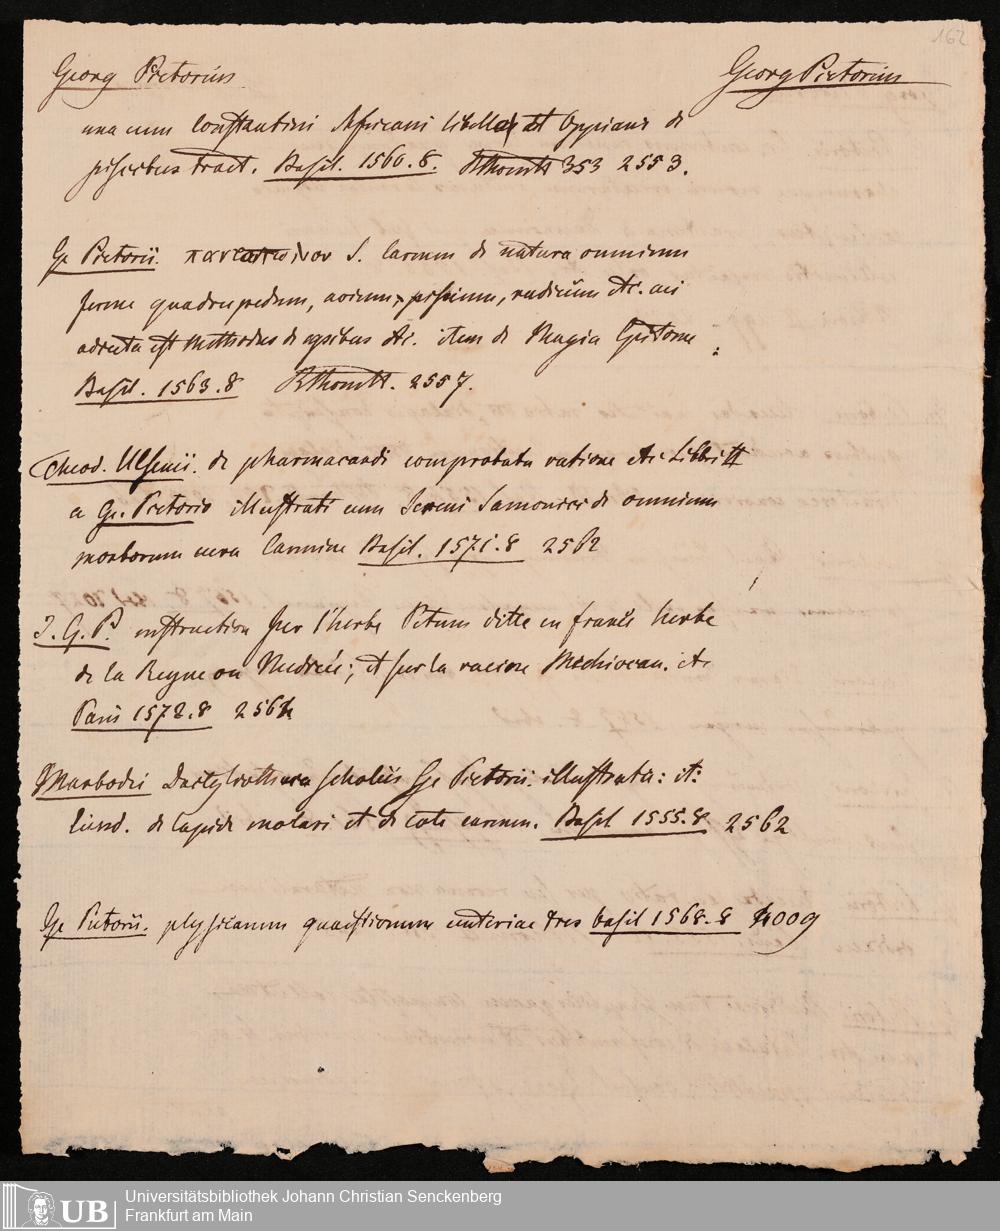 162
Georg Pictorius Georg Pictorius
una cum Constantini Africani libello et Oppiani de
piscibus tract. Basil. 1560. 8. 353 2553.
Ge Pictorii. S. Carmen de natura omnium
ferme quadrupedum, avium, piscium, radicum etc. cui
adiecta est Methodus de apibus etc. item de Magia Epitome
Basil. 1563. 8 2557.
Theod. Ulsenii. de pharmacandi comprobata ratione etc Libri II
a Ge. Pictorio illustrati cum Sereni Samonici de omnium
morborum cura Carmine Basil. 1571. 8 2562
J. G. P. instruction sur l'herbe Petum ditte en france herbe
de la Reyne ou Medicée; et sur la racine Mechiocan. etc
Paris 1572. 8 2564
Marbodei Dactylotheca scholiis Ge Pictorii. illustrata: it:
Eiusd. de lapide molari et de cote carmen. Basil 1555. 8 2562
Ge Pictorii. physicarum quaestionum centuriae tres basil 1568. 8 4009
UB
Universitätsbibliothek Johann Christian Senckenberg
Frankfurt am Main